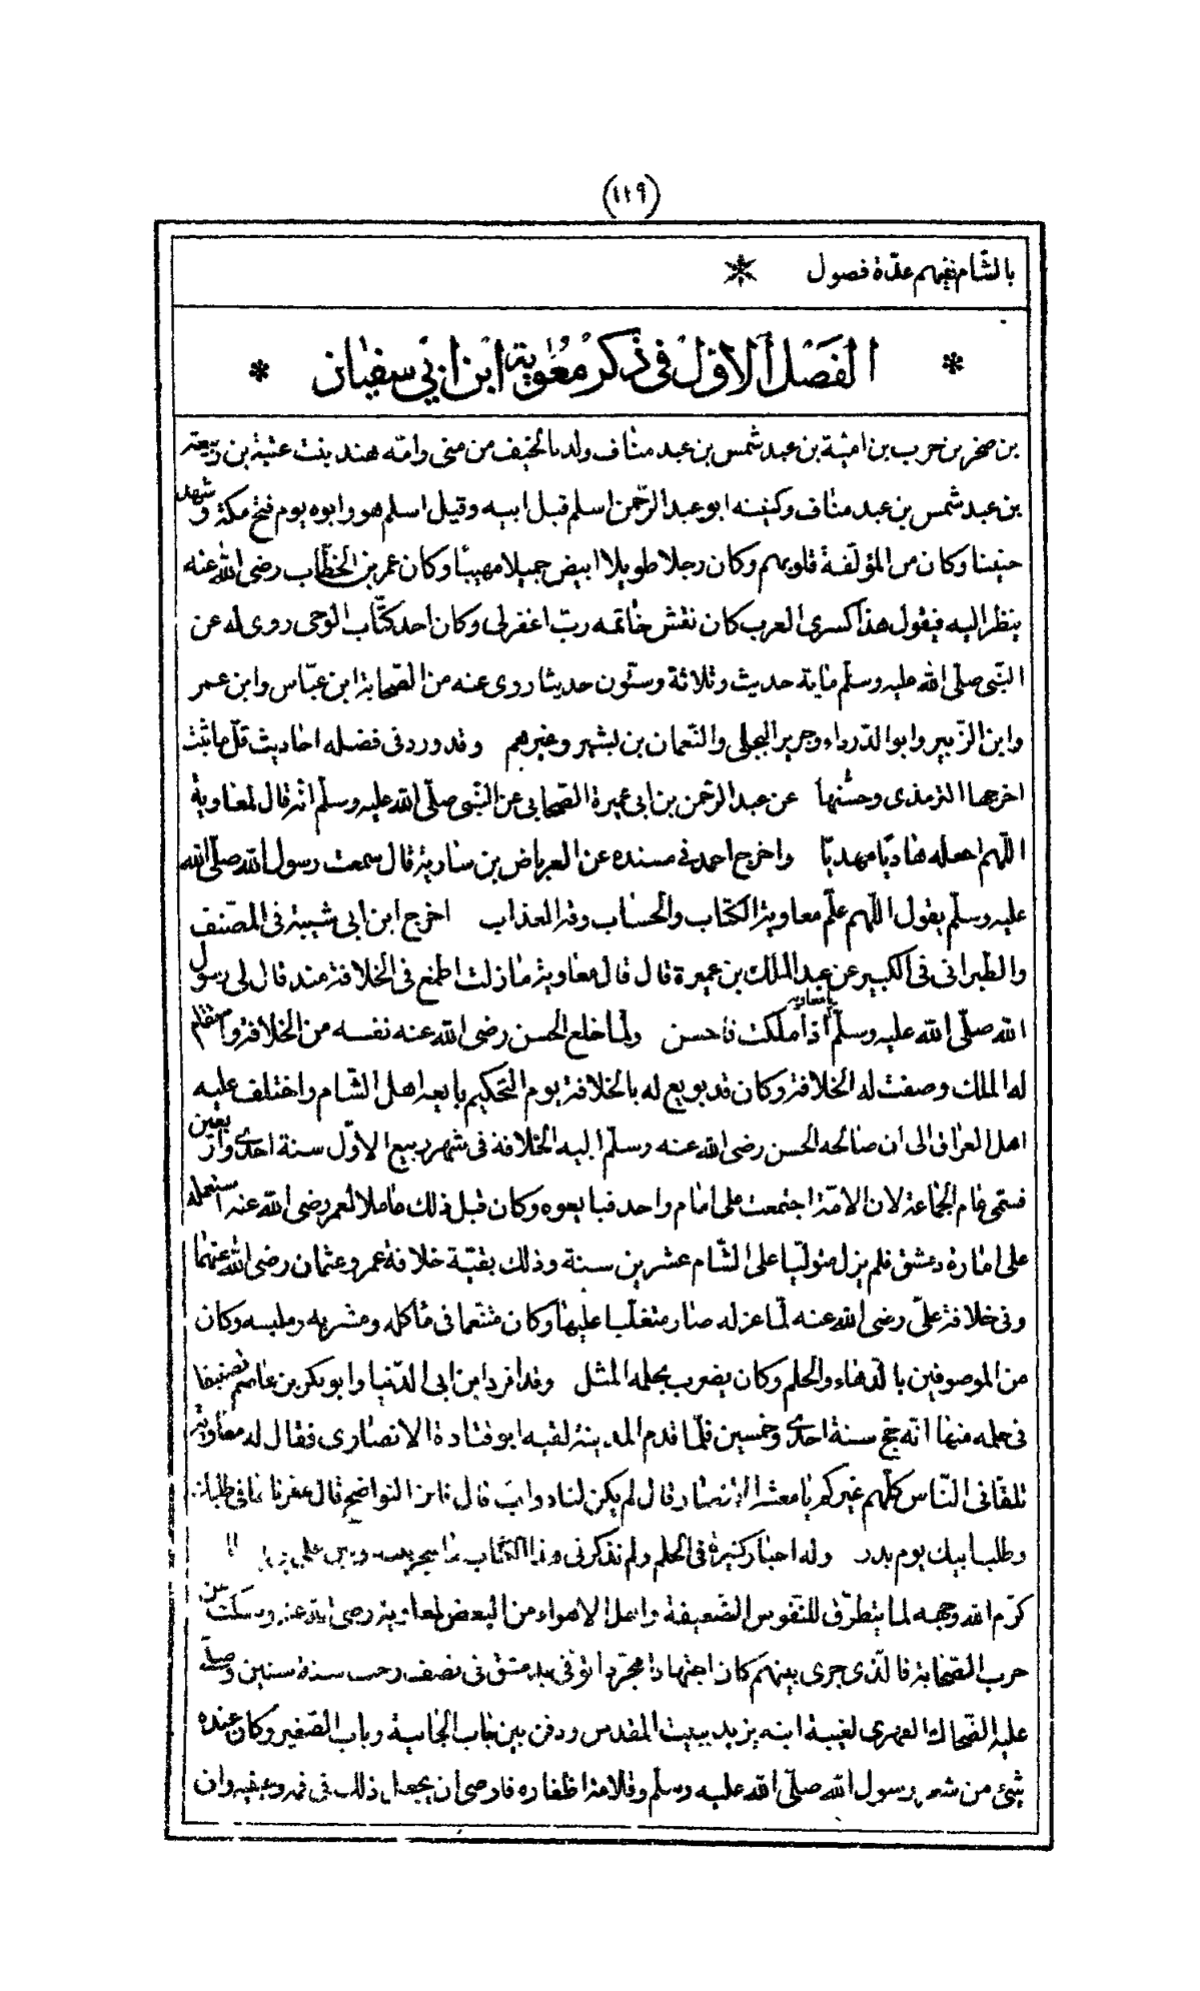 (١١٩)
بالشّام ففيهم عدّة فصول *
* الفَصْل الاوّل في ذكر مُعٰوية ابن ابي سفيان *
بن صخر بن حرب بن اميّة بن عبد شمس بن عبد مناف ولد بالخيف من منى وامّه هند بنت عتبة بن ربيعة
بن عبد شمس بن عبد مناف وكنيته ابو عبد الرّحمن اسلم قبل ابيه وقيل اسلم هو وابوه يوم فتح مكة وشهد
حنينا وكان من المؤلّفة قلوبهم وكان رجلا طويلا ابيض جميلا مهيبا وكان عمر بن الخطّاب رضى الله عنه
ينظر اليه فيقول هذا كسرى العرب كان نقش خاتمه ربّ اغفر لى وكان احد كتّاب الوحى روى له عن
النبّى صلّى الله عليه وسلّم ماية حديث وثلاثة وستّون حديثا روى عنه من الصّحابة ابن عبّاس وابن عمر
وابن الزّبير وابو الدّرداء وجرير البجلى والنّعمان بن بشير وغيرهم وقد ورد فى فضله احاديث قلّ ما ثبت
اخرجها الترمذى وحسّنها عن عبد الرّحمن بن ابى عميرة الصّحابى عن النبّى صلّى الله عليه وسلّم انّه قال لمعاوية
اللّهم اجعله هاديّا مهديّا واخرج احمد فى مسنده عن العرباض بن سارية قال سمعت رسول الله صلّى الله
عليه وسلّم يقول اللّهم علّم معاوية الكتاب والحساب وقه العذاب اخرج ابن ابى شيبة فى المصنّف
والطبرانى فى الكبير عن عبد الملك بن عميرة قال قال معاوية ما زلت اطمع فى الخلافة منذ قال لى رسول
الله صلّى الله عليه وسلّم يا معاوية اذا ملكت فاحسن ولمّا خلع الحسن رضى الله عنه نفسه من الخلافة وانتظم
له الملك وصفت له الخلافة وكان قد بويع له بالخلافة يوم التحكيم بايعه اهل الشّام واختلف عليه
اهل العراق الى ان صالحه الحسن رضى الله عنه وسلّم اليه الخلافة فى شهر ربيع الاوّل سنة احدى واربعين
فسمّى عام الجماعة لان الامّة اجتمعت على امام واحد فبايعوه وكان قبل ذلك عاملا لعمر رضى الله عنه استعمله
على امارة دمشق فلم يزل متوليّا على الشّام عشرين سنة وذلك بقيّة خلافة عمر وعثمان رضى الله عنهما
وفى خلافة علىّ رضى الله عنه لمّا عزله صار متغلّبا عليها وكان متنعما فى ماكله ومشربه وملبسه وكان
من الموصوفين بالدّهاء والحلم وكان يضرب بحلمه المثل وقد افرد ابن ابى الدّنيا وابو بكر بن عاصم تصنيفا
فى حلمه منها انّه حجّ سنة احدى وخمسين فلمّا قدم المدينة لقيه ابو قتادة الانصارى فقال له معاوية
تلقانى النّاس كلّهم غيركم يا معشر الانصار قال لم يكن لنا دوابّ قال فاين النواضح قال عقرناها فى طلبك
وطلب ابيك يوم بدر وله اخبار كثيرة فى الحلم ولم نذكر فى هذا الكتاب ما جرى بينه وبين على
كرّم الله وجهه لما يتطرّق للنّفوس الضّعيفة واهل الاهواء من البغض لمعاوية رضى الله عنه وسكت عن
حرب الصّحابة فالّذى جرى بينهم كان اجتهادا مجرّدا توفّى بدمشق فى نصف رجب سنة ستين وصلّى
عليه الضحاك الفهرى لغيبة ابنه يزيد ببيت المقدس ودفن بين باب الجابية وباب الصّغير وكان عنده
شئ من شعر رسول الله صلّى الله عليه وسلّم وقلامة اظفاره فاوصى ان يجعل ذلك فى فمه وعينيه وان